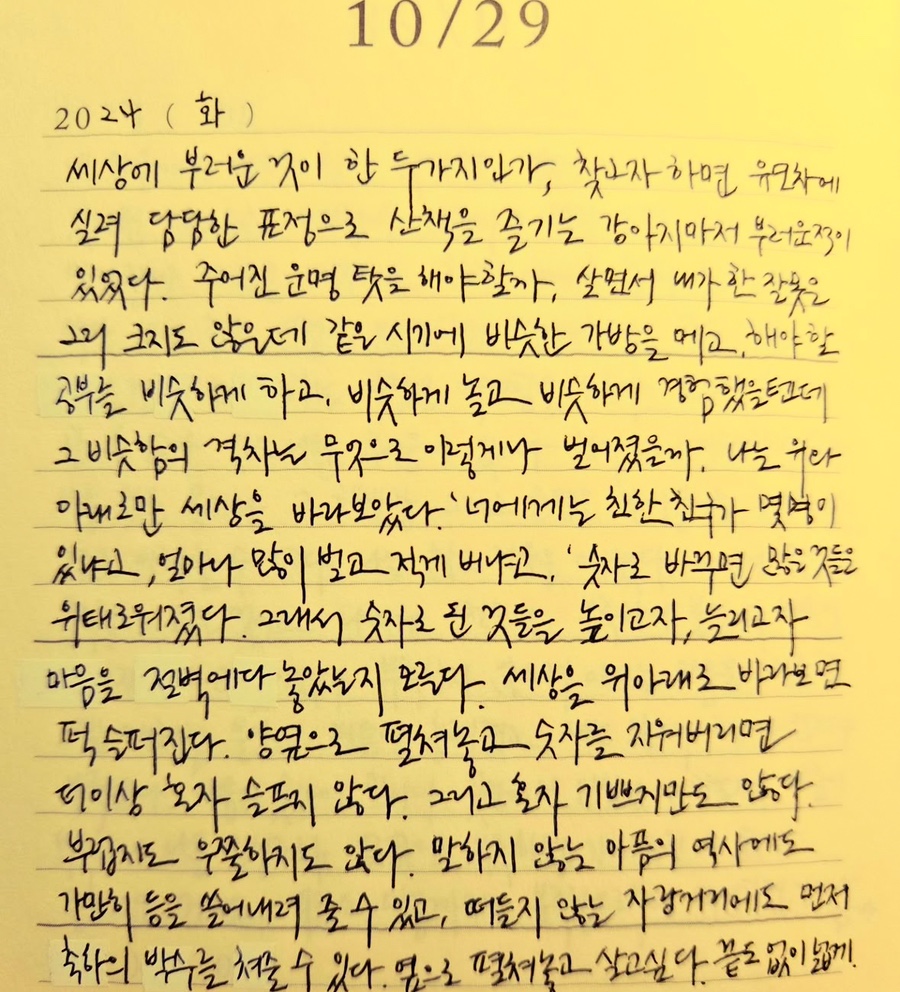 10/29
2024 ( 화 )
세상에 부러운 것이 한 두가지인가, 찾고자 하면 유모차에
실려 담담한 표정으로 산책을 즐기는 강아지마저 부러운적이
있었다. 주어진 운명 탓을 해야할까, 살면서 내가 한 잘못을
그리 크지도 않을텐데 같은 시기에 비슷한 가방을 메고, 해야할
공부를 비슷하게 하고, 비슷하게 놀고 비슷하게 경험했을텐데
그 비슷함의 격차는 무엇으로 이렇게나 벌어졌을까. 나는 위와
아래로만 세상을 바라보았다. '너에게는 친한 친구가 몇명이
있냐고, 얼마나 많이 벌고 적게 버냐고,' 숫자로 바꾸면 많은 것들은
위태로워졌다. 그래서 숫자로 된 것들을 높이고자, 늘리고자
마음을 절벽에다 놓았는지 모른다. 세상을 위아래로 바라보면
퍽 슬퍼진다. 양옆으로 펼쳐놓고 숫자를 지워버리면
더이상 혼자 슬프지 않다. 그리고 혼자 기쁘지만도 않다.
부럽지도 우쭐하지도 않다. 말하지 않는 아픔의 역사에도
가만히 등을 쓸어내려 줄 수 있고, 떠들지 않는 자랑거리에도 먼저
축하의 박수를 쳐줄 수 있다. 옆으로 펼쳐놓고 살고싶다. 끝도 없이 넓게.